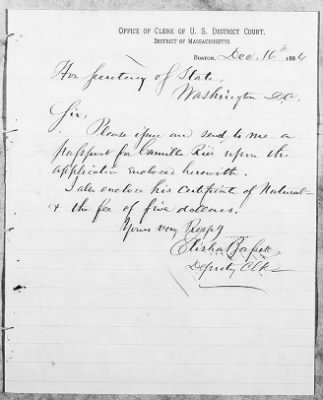 OFFICE OF CLERK OF U. S. DISTRICT COURT,
DISTRICT OF MASSACHUSETTS.
BOSTON, Dec. 16th 1884
Hon Secretary of State,
Washington D.C.
Sir,
Please issue and send to me a
passport for Camillo Rice upon the
application enclosed herewith.
I also enclose his Certificate of Natural-
& the fee of five dollars.
Yours very Respy
Elisha Bassett
Deputy Clk